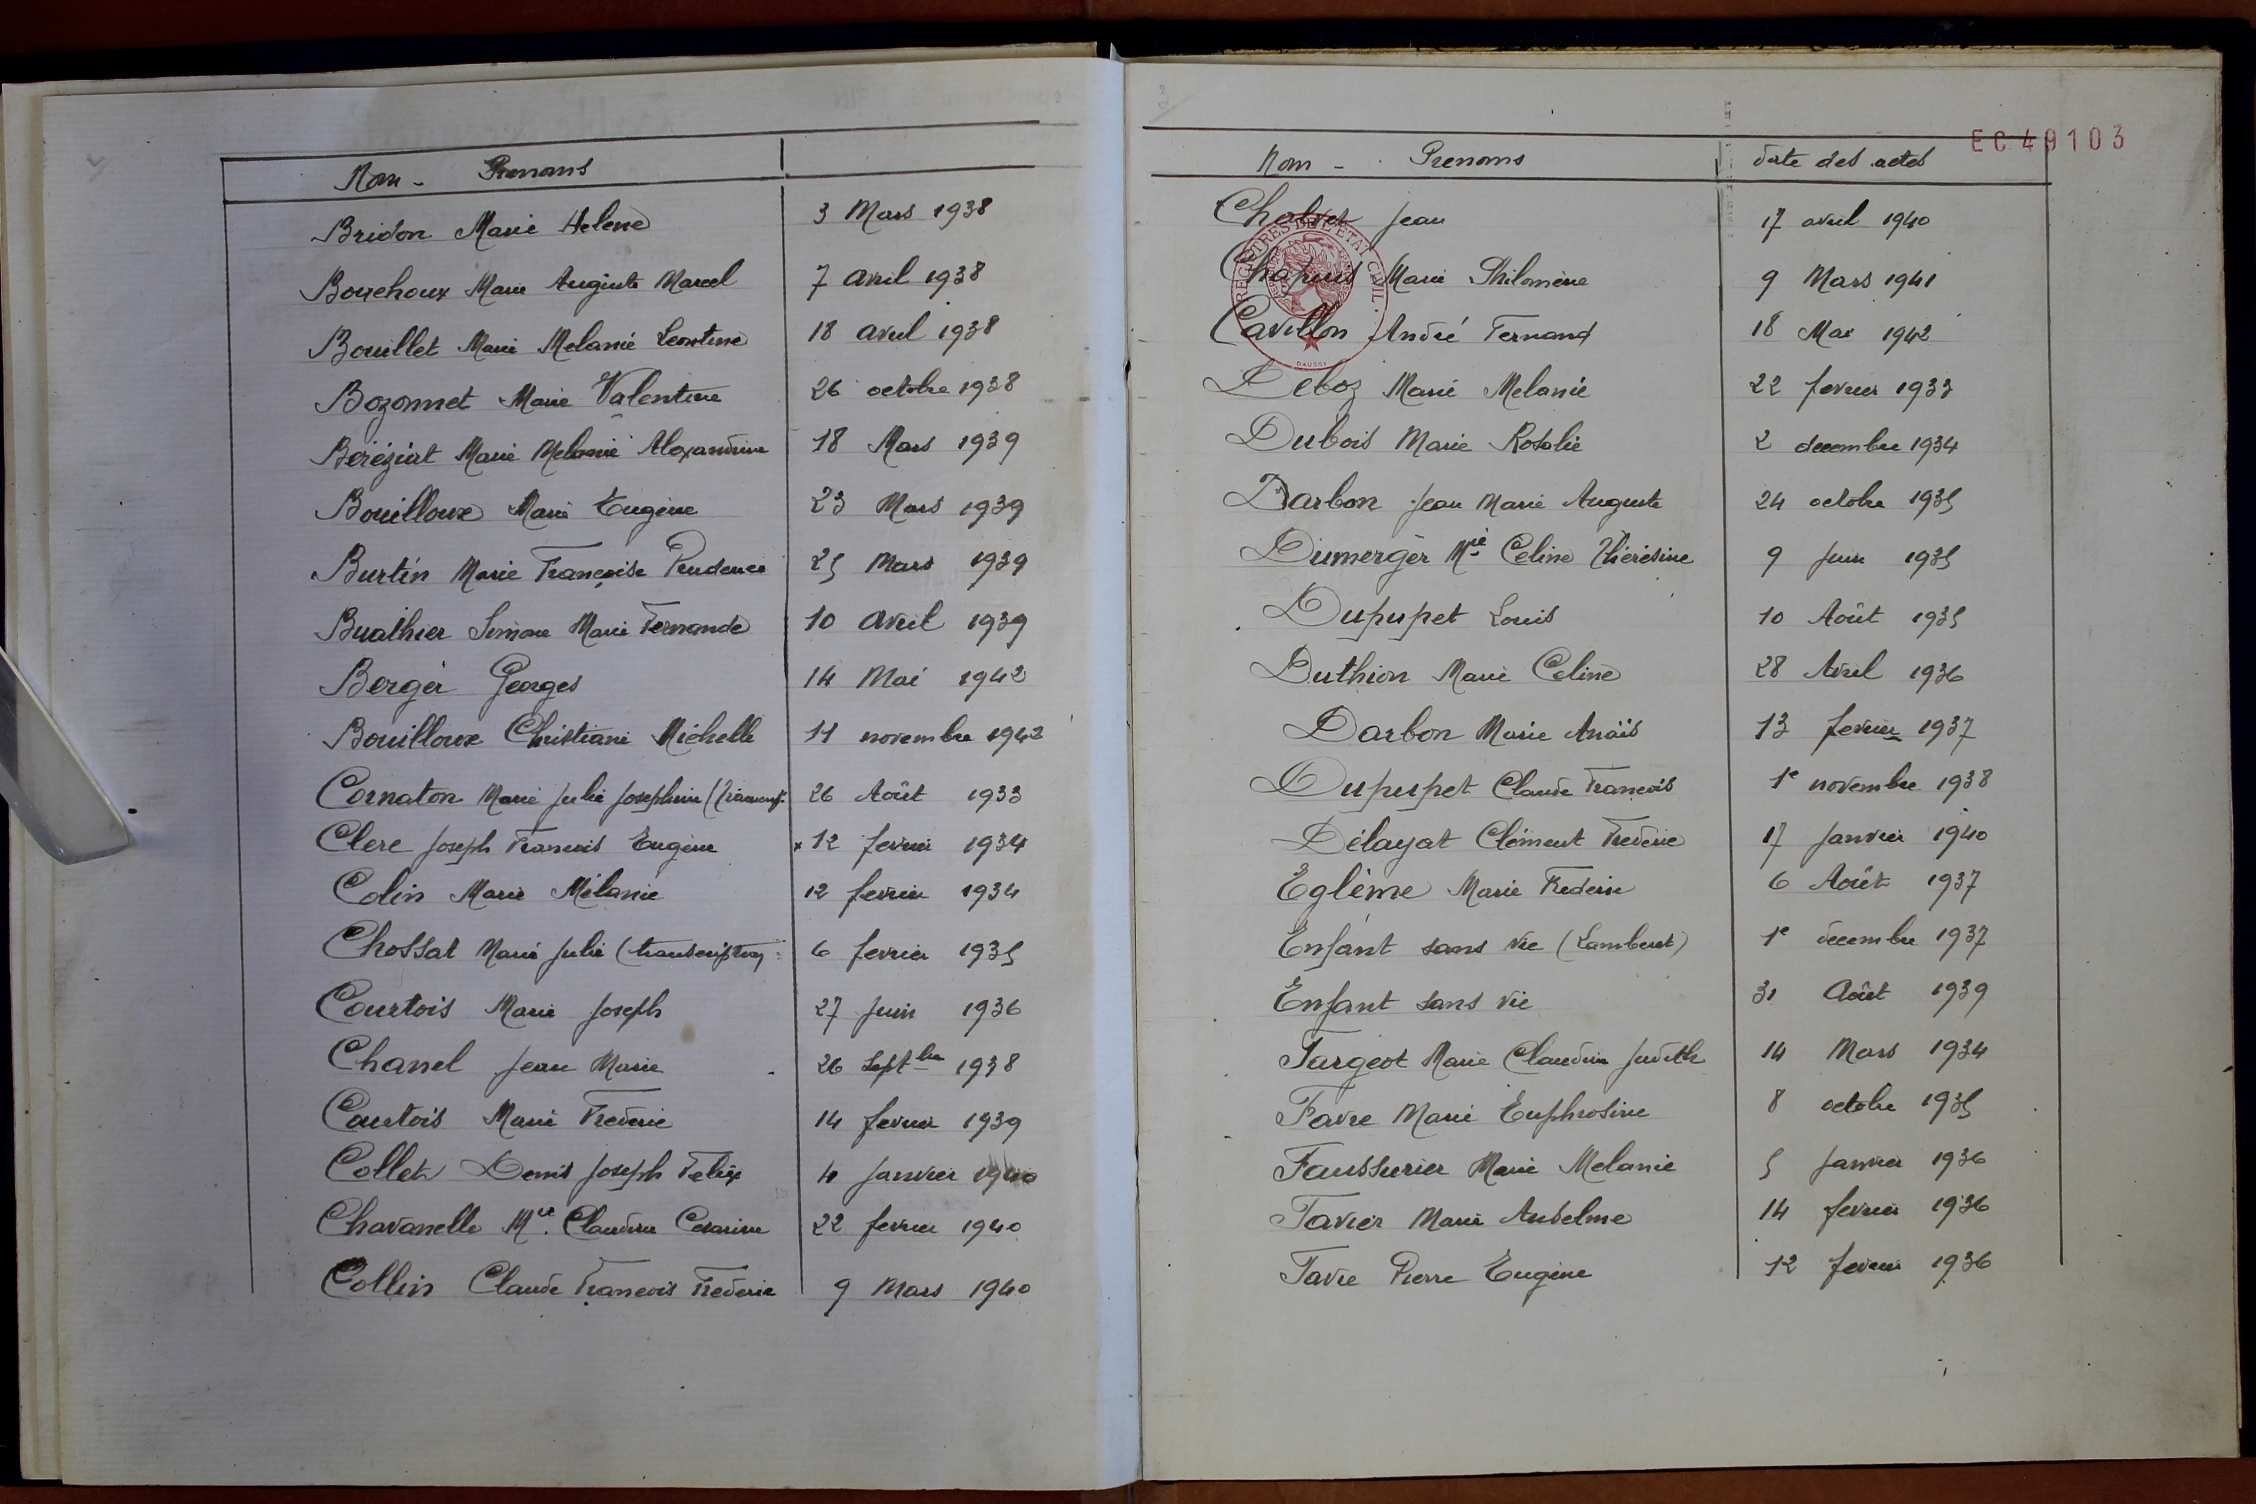 Nom - Prenoms
Bridon Marie Helene 3 Mars 1938
Bouchoux Marie Auguste Marcel 7 avril 1938
Bouillet Marie Melanie Leontine 18 avril 1938
Bozonnet Marie Valentine 26 octobre 1938
Béréziat Marie Melanie Alexandrine 18 Mars 1939
Bouilloux Marie Eugène 23 Mars 1939
Burtin Marie Françoise Prudence 25 Mars 1939
Buathier Simone Marie Fernande 10 avril 1939
Berger Georges 14 Mai 1942
Bouilloux Christiane Michelle 11 novembre 1942
Cornaton Marie Julie Josephine 26 Août 1933
Clerc Joseph Francois Eugène x 12 fevrier 1934
Colin Marie Mélanie 12 fevrier 1934
Chossat Marie Julie (transcription 6 fevrier 1935
Courtois Marie Joseph 27 Juin 1936
Chanel Jean Marie 26 Septbre 1938
Courtois Marie Frederic 14 fevrier 1939
Collet Denis Joseph Felix Janvier 1940
Chavanelle Mie Claudine Cesarine 22 fevrier 1940
Collin Claude Francois Frederic 9 Mars 1940
EC49103
Nom - Prenoms date des actes
Jean 17 avril 1940
Chapuis Marie Philomène 9 Mars 1941
Cavillon André Fernand 18 Mai 1942
REGISTRES DE L'ETAT CIVIL
DAUSSY
Deboz Marie Melanie 22 fevrier 1933
Dubois Marie Rosalie 2 decembre 1934
Darbon Jean Marie Auguste 24 octobre 1935
Dumerger Mie Celine Thérésine 9 Juin 1935
Dupupet Louis 10 Août 1935
Duthion Marie Celine 28 Avril 1936
Darbon Marie Anaïs 13 fevrier 1937
Dupupet Claude François 1e novembre 1938
Délayat Clément Frederic 17 Janvier 1940
Eglème Marie Frederic 6 Août 1937
Enfant sans vie (Lambert) 1e decembre 1937
Enfant sans vie 31 Août 1939
Fargeot Marie Claudine Judith 14 Mars 1934
Favre Marie Euphrosine 8 octobre 1935
Faussurier Marie Melanie 5 Janvier 1936
Favier Marie Anselme 14 fevrier 1936
Favre Pierre Eugène 12 fevrier 1936